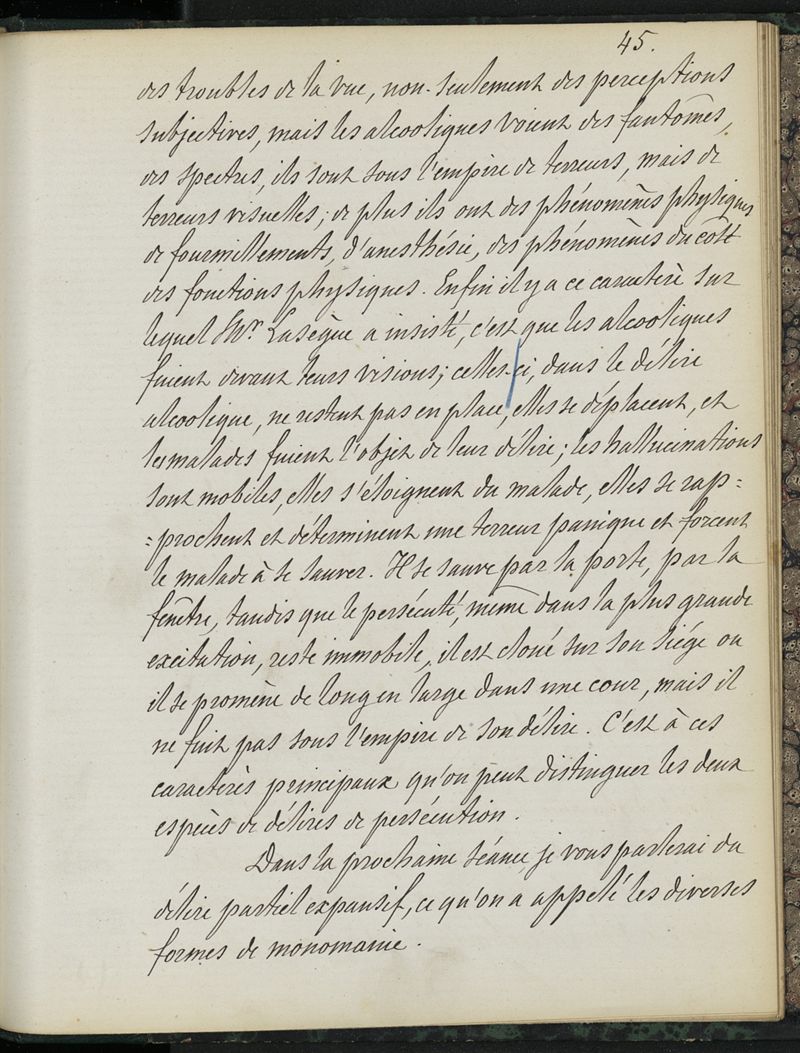 45.
des troubles de la vue, non-seulement des perceptions
subjectives, mais les alcooliques voient des fantômes,
des spectres, ils sont sous l'empire de terreurs, mais de
terreurs visuelles; de plus ils ont des phénomènes physiques
de fourmillements, d'anesthésie, des phénomènes du côté
des fonctions physiques. Enfin il y a ce caractère sur
lequel Mr. Lasègue a insisté, c'est que les alcooliques
fuient devant leurs visions; celles-ci, dans le délire
alcoolique, ne restent pas en place, elles se déplacent, et
les malades fuient l'objet de leur délire; les hallucinations
sont mobiles, elles s'éloignent du malade, elles se rap=
=prochent et déterminent une terreur panique et forcent
le malade à se sauver. Il se sauve par la porte, par la
fenêtre, tandis que le persécuté, même dans la plus grande
excitation, reste immobile, il est cloué sur son siége ou
il se promène de long en large dans une cour, mais il
ne fuit pas sous l'empire de son délire. C'est à ces
caractères principaux qu'on peut distinguer les deux
espèces de délires de persécution.
Dans la prochaine séance je vous parlerai du
délire partiel expansif, ce qu'on a appelé les diverses
formes de monomanie.